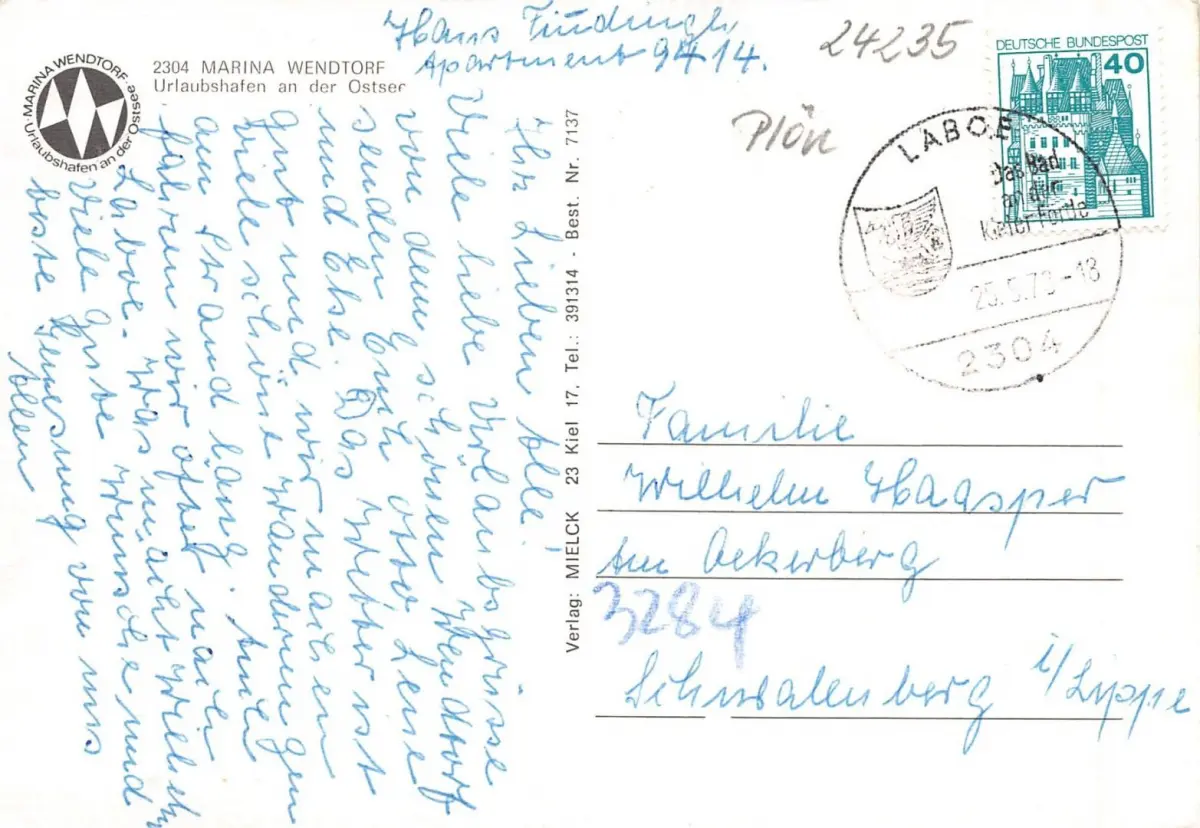 Apartment 9414.
24235
Plön
MARINA WENDTORF
Urlaubshafen an der Ostsee
2304 MARINA WENDTORF
Urlaubshafen an der Ostsee
DEUTSCHE BUNDESPOST
40
LABOE
Das Bad
an der
Kieler Förde
25.5.78-18
2304
Ihr Lieben Alle!
Viele liebe Urlaubsgrüsse
von dem schönen Wendtorf
senden Euch Otto Lene
und Else. Das Wetter ist
gut und wir machen
viele schöne Wanderungen
am Strand läng. Auch
fahren wir oft nach
Laboe. Was macht Wilh
Viele gute Wünsche und
beste Genesung von uns
Allen
Verlag: MIELCK 23 Kiel 17, Tel.: 391314 - Best. Nr. 7137
Familie
Wilhelm Haasper
Am Ockerberg
3284
Schwalenberg i/Lippe